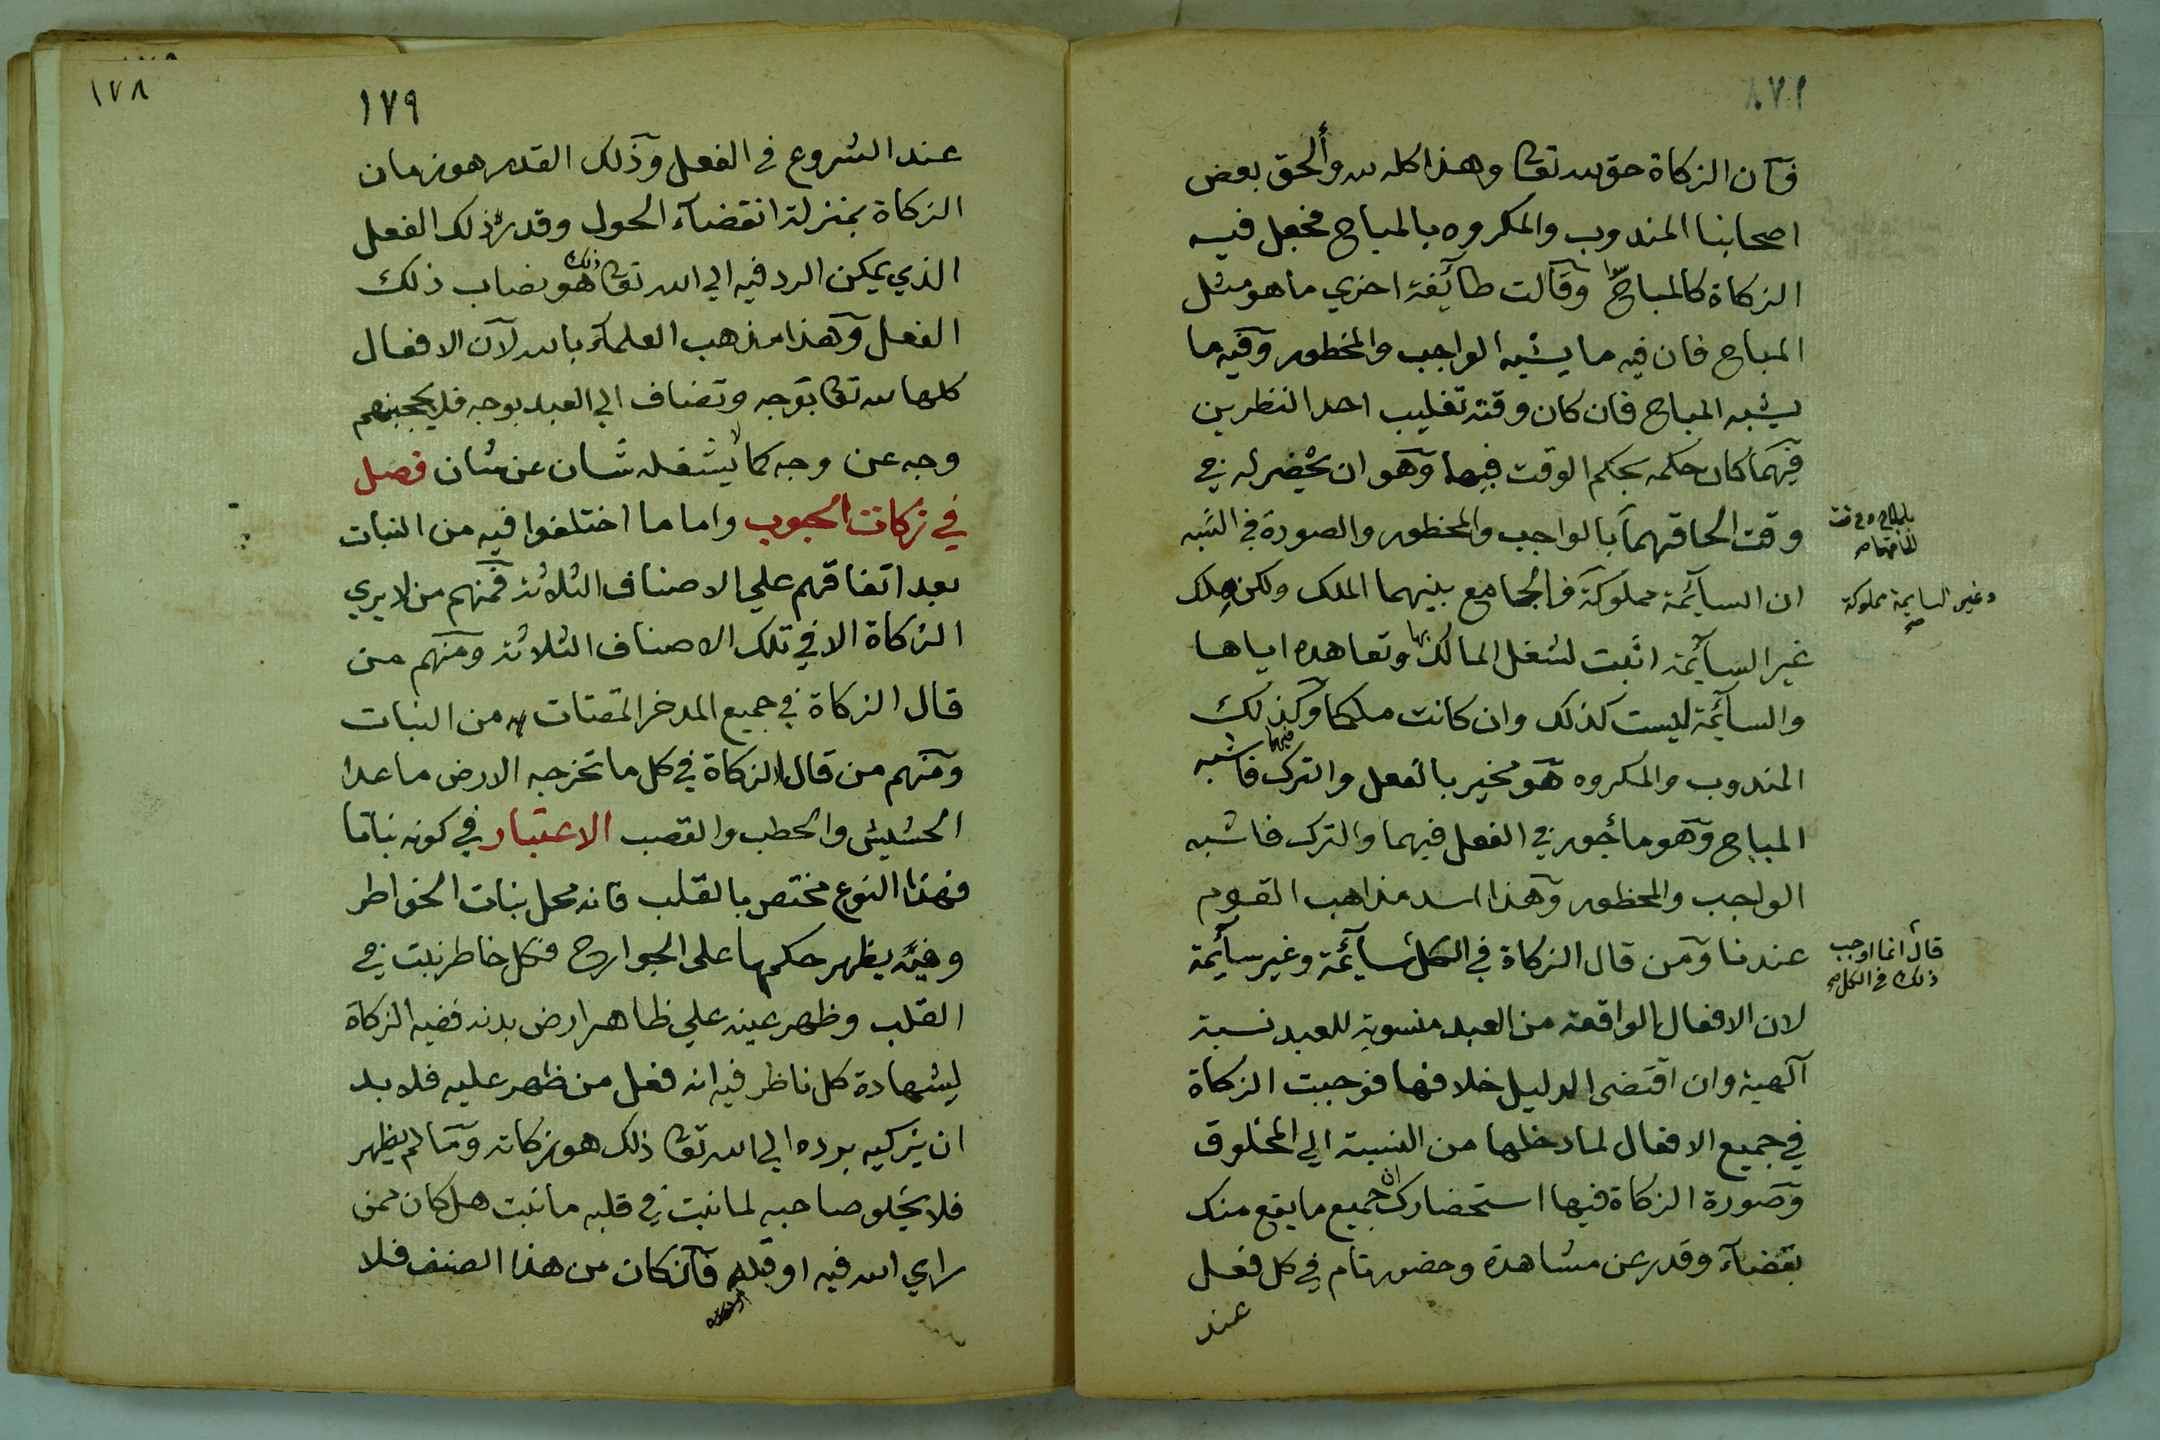 ١٧٨
فان الزكاة حق لله تعا وهذا كله لله وألحق بعض
اصحابنا المندوب والمكروه بالمباح فجعل فيه
الزكاة كالمباح وقالت طائفة اخري ما هو مثل
المباح فان فيه ما يشبه الواجب والمحظور وفيه ما
يشبه المباح فان كان وقته تغليب احد النظرين
فيهما كان حكمه بحكم الوقت فيهما وهو ان يحضر له في
وقت الحاقهما بالواجب والمحظور والصورة في الشبه
بالمباح وفي وقت الحاقهما صح
ان السائمة مملوكة فالجامع بينهما الملك ولكن ملك
وغير السايمة مملوكة صح
غير السائمة اثبت لشغل المالك بها وتعاهده اياها
والسائمة ليست كذلك وان كانت ملكا وكذلك
المندوب والمكروه هو مخير فيهما بالفعل والترك فاشبه
المباح وهو مأجور في الفعل فيهما والترك فاشبه
الواجب والمحظور وهذا اسد مذاهب القوم
عندنا ومن قال الزكاة في الكل سائمة وغير سائمة
قال انما اوجب
ذلك في الكل صح
لان الافعال الواقعة من العبد منسوبة للعبد نسبة
آلهية وان اقتضى الدليل خلافها فوجبت الزكاة
في جميع الافعال لما دخلها من النسبة الي المخلوق
وصورة الزكاة فيها استحضارك ان جميع ما يقع منك
بقضاء وقدر عن مشاهدة وحضور تام في كل فعل
عند
١٧٨
١٧٩
عند الشروع في الفعل وذلك القدر هو زمان
الزكاة بمنزلة انقضاء الحول وقدر ذلك الفعل
الذي يمكن الرد فيه الي الله تعا ذلك هو نصاب ذلك
الفعل وهذا مذهب العلماء بالله لان الافعال
كلها لله تعا بوجه وتضاف الي العبد بوجه فلا يحجبنهم
وجه عن وجه كما لا يشغله شان عن شان فصل
في زكات الحبوب واما ما اختلفوا فيه من النبات
بعد اتفاقهم علي الاصناف الثلاثة فمنهم من لا يري
الزكاة الا في تلك الاصناف الثلاثة ومنهم من
قال الزكاة في جميع المدخر المقتات من النبات
ومنهم من قال الزكاة في كل ما تخرجه الارض ما عدا
الحشيش والحطب والقصب الاعتبار في كونه نباتا
فهذا النوع مختص بالقلب فانه محل نبات الخواطر
وفيه يظهر حكمها على الجوارح فكل خاطر نبت في
القلب وظهر عينه علي ظاهر ارض بدنه ففيه الزكاة
ليشهادة كل ناظر فيه انه فعل من ظهر عليه فلا بد
ان يزكيه برده الي الله تعا ذلك هو زكاته وما لم يظهر
فلا يخلو صاحبه لما نبت في قلبه ما نبت هل كان ممن
راي الله فيه او قبله فان كان من هذا الصنف فلا